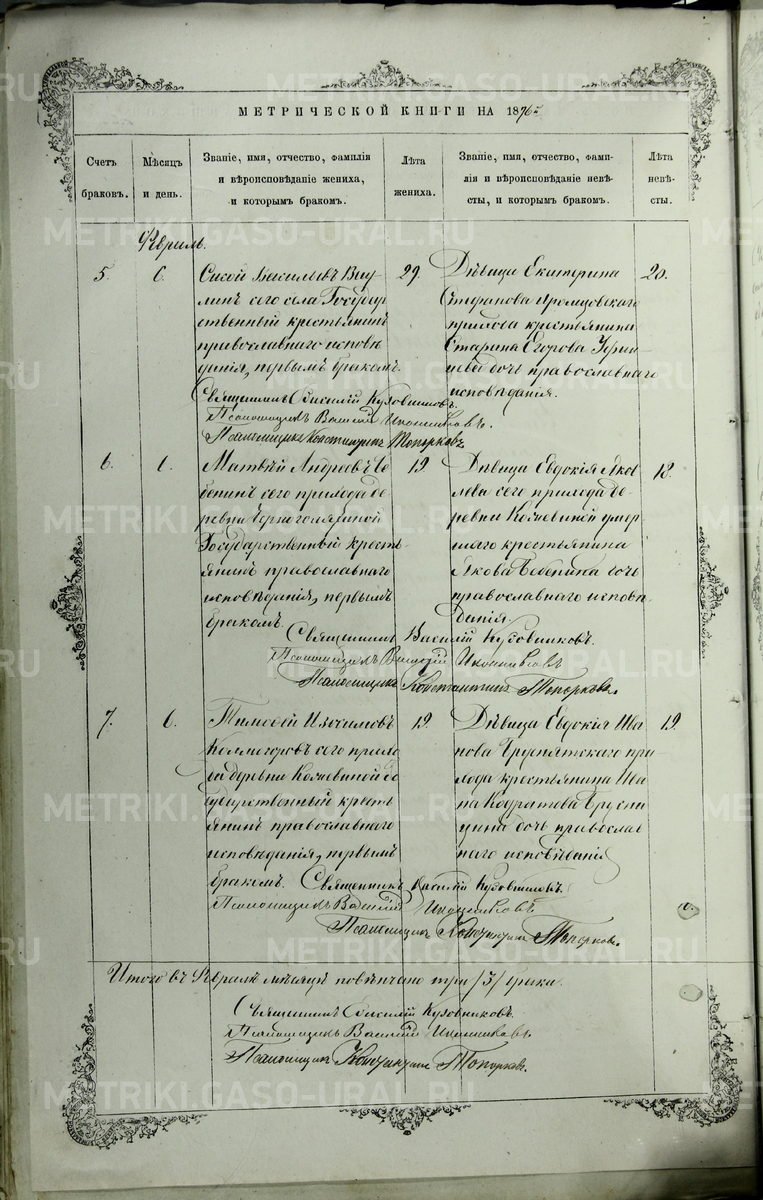 МЕТРИЧЕСКОЙ КНИГИ НА 1876 г.
Счетъ браковъ.
Мѣсяцъ и день.
Званіе, имя, отчество, фамилія
и вѣроисповѣданіе жениха,
и которымъ бракомъ.
Лѣта
жениха.
Званіе, имя, отчество, фами-
лія и вѣроисповѣданіе невѣ-
сты, и которымъ бракомъ.
Лѣта
невѣ-
сты.
Февраль.
5.
6.
Васильевъ
сего села Государ
ственный крестьянинъ
православнаго исповѣ
данія, первымъ бракомъ.
29.
Дѣвица Екатерина
Стефанова
прихода крестьянина
Егорова
дочь православнаго
исповѣданія.
20.
Священникъ Василій Кузовниковъ.
Псаломщикъ Василій Иконниковъ.
Псаломщикъ Константинъ Топорковъ
6.
6.
Матвѣй Андреевъ Бе
бенинъ сего прихода де
ревни
Государственный кресть
янинъ православнаго
исповѣданія, первымъ
бракомъ.
19
Дѣвица Евдокія Яков
лева сего прихода де-
ревни Кочневиной умер
шаго крестьянина
Якова дочь
православнаго исповѣ
данія
18.
Священникъ Василій Кузовниковъ.
Псаломщикъ Василій Иконниковъ
Псаломщикъ Константинъ Топорковъ.
7.
6.
Тимофей Изосимовъ
Колмогоровъ сего прихо
да деревни Кочневиной го
сударственный кресть
янинъ православнаго
исповѣданія, первымъ
бракомъ.
19.
Дѣвица Евдокія Ива
нова Бруснятскаго при
хода крестьянина Ива
на Кодратова Брусни
цина дочь православ
наго исповѣданія
19.
Священникъ Василій Кузовниковъ.
Псаломщикъ Василій Иконниковъ.
Псаломщикъ Константинъ Топорковъ.
Итого въ Февралѣ мѣсяцѣ повѣнчано три /3/ брака.
Священникъ Василій Кузовниковъ.
Псаломщикъ Василій Иконниковъ.
Псаломщикъ Константинъ Топорковъ.
METRIKI.GASO-URAL.RU